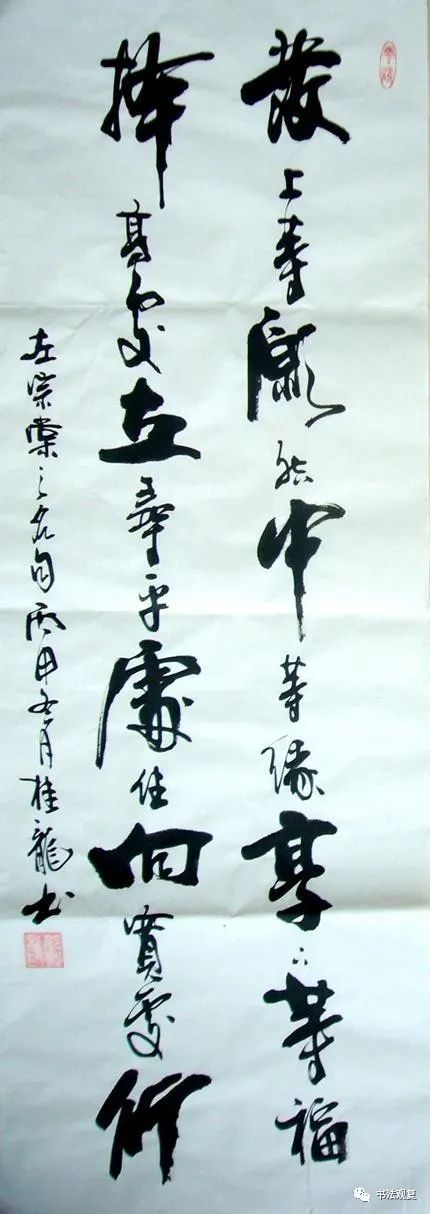 發上等願結中等緣享下等福
擇高處立尋平處住向寬處行
左宗棠之名句丙申冬月桂龍书
书法观复